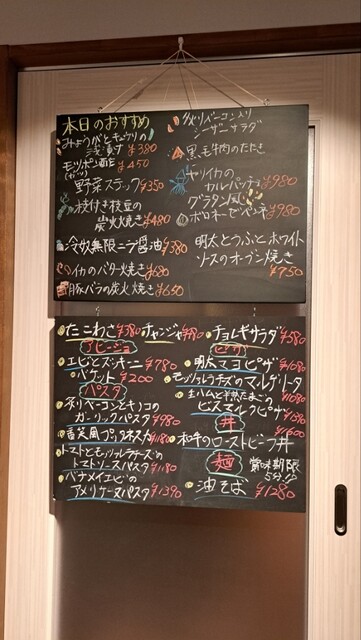 本日のおすすめ
みょうがとキュウリの
浅漬け ¥380
モツポン酢 ¥450
野菜スティック ¥350
枝付き枝豆の
炭火焼き ¥480
冷奴無限ニラ醤油 ¥380
イカのバター焼き ¥680
豚バラの炭火焼き ¥650
炙りベーコン入り
シーザーサラダ
黒毛牛肉のたたき
ヤリイカの
カルパッチョ ¥980
グラタン風
ボロネーゼペンネ ¥980
明太とうふとホワイト
ソースのオーブン焼き
¥750
たこわさ ¥380
チャンジャ
アヒージョ
エビとズッキーニ ¥780
バケット ¥200
パスタ
炙りベーコンとキノコの
ガーリックパスタ ¥980
¥1180
トマトとモッツァレラチーズの
トマトソースパスタ ¥1180
バナメイエビの
アメリケーヌパスタ ¥1390
チョレギサラダ ¥580
ピザ
明太マヨピザ ¥1080
モッツァレラチーズのマルゲリータ
¥1080
生ハムと半熟たまごの
ビスマルクピザ ¥1390
丼
¥1600
和牛のローストビーフ丼
麺
賞味期限
5分!!
油そば ¥1280